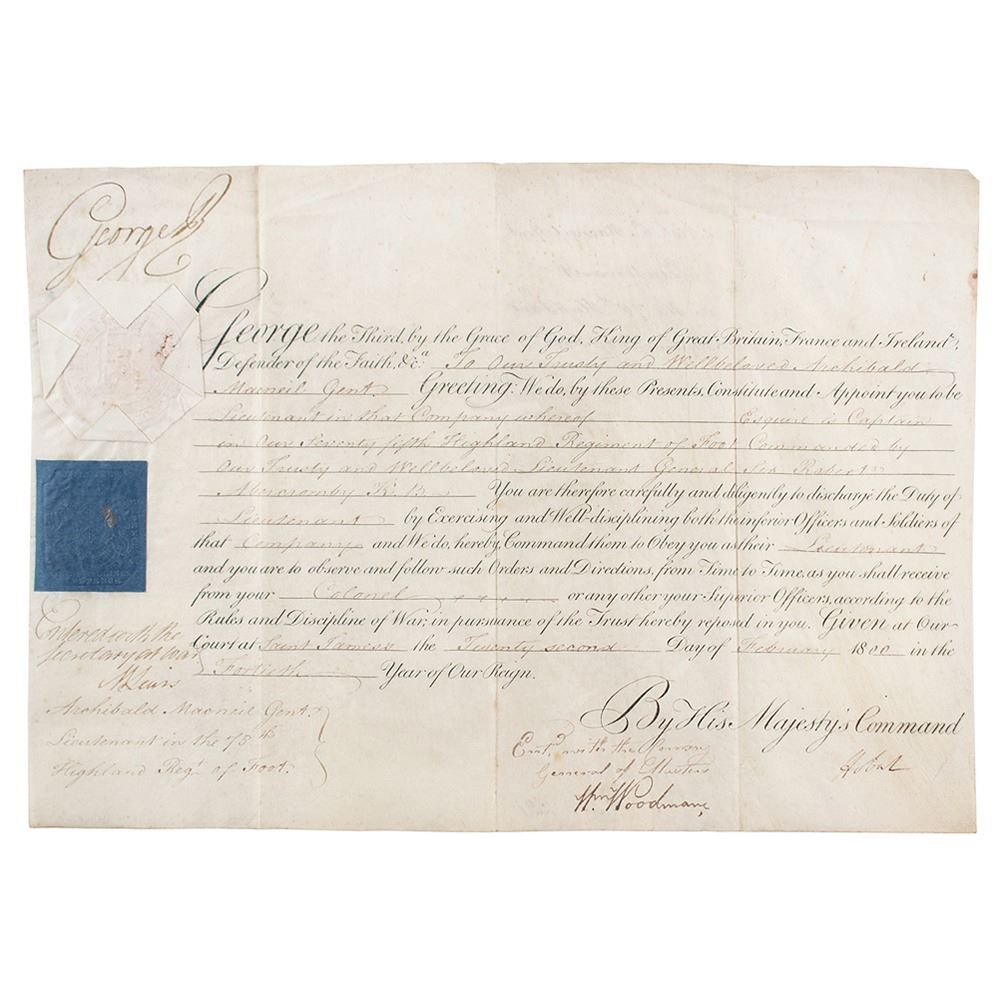 George R
George the Third, by the Grace of God, King of Great-Britain, France and Ireland,
Defender of the Faith, &c.a To Our Trusty and Wellbeloved Archibald
Macneil Gent. Greeting: We do, by these Presents, Constitute and Appoint you to be
Lieutenant in that Company whereof Esquire is Captain
in Our Seventy fifth Highland Regiment of Foot Commanded by
Our Trusty and Wellbeloved Lieutenant General Sir Robert
Abercromby K.B. You are therefore carefully and diligently to discharge the Duty of
Lieutenant by Exercising and Well-disciplining both the inferior Officers and Soldiers of
that Company and We do, hereby, Command them to Obey you as their Lieutenant
and you are to observe and follow such Orders and Directions, from Time to Time, as you shall receive
from your Colonel or any other your Superior Officers, according to the
Rules and Discipline of War, in pursuance of the Trust hereby reposed in you. Given at Our
Court at Saint James's the Twenty second Day of February 1800 in the
Fortieth Year of Our Reign.
By His Majesty's Command
Entered with the
Secretary at War
M Lewis
Archibald Macneil Gent.
Lieutenant in the 75th
Highland Regt. of Foot.
Entd. with the Commy
General of Musters
Wm Woodman,